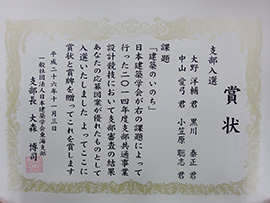 賞状
支部入選
大野 洋輔 君 黒川 泰正 君
中山 愛弓 君 小笠原 聡志 君
課題
「建築のいのち」
日本建築学会が右の課題によって
行った二〇一四年度支部共通事業
設計競技において支部審査の結果
あなたの応募図案が優れたものとして
入選いたしました よってここに
賞状と賞牌を贈ってこれを賞します
平成二十六年十一月三日
一般社団法人日本建築学会東海支部
支部長 大森 博司